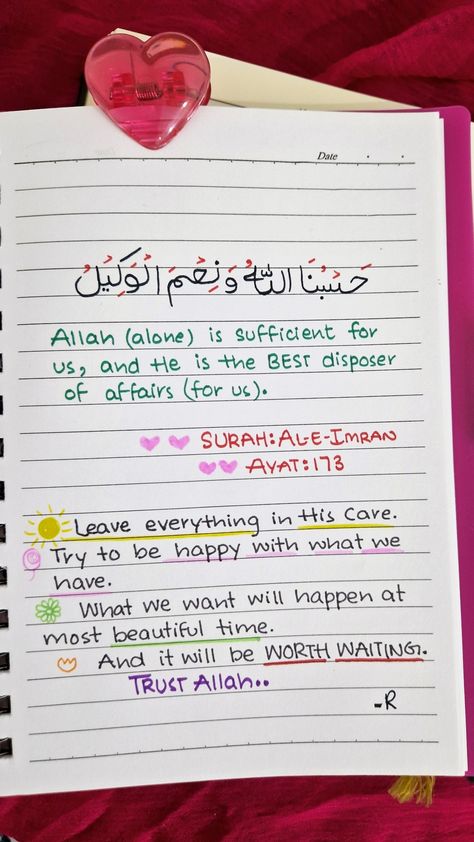 Date
حَسْبُنَا اللّٰهُ وَنِعْمَ الْوَكِيْلُ
Allah (alone) is sufficient for
us, and He is the BEST disposer
of affairs (for us).
SURAH: AL-E-IMRAN
AYAT: 173
Leave everything in His Care.
Try to be happy with what we
have.
What we want will happen at
most beautiful time.
And it will be WORTH WAITING.
TRUST Allah..
-R